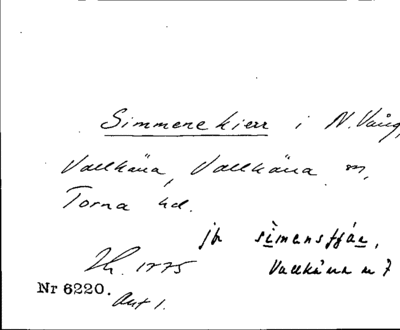 Simmene kierr i N. Vång,
Vallkärra, Vallkärra sn,
Torna hd.
jfr simensfjär,
Lh. 1775 Vallkärra n 7
Nr 6220.
Akt 1.